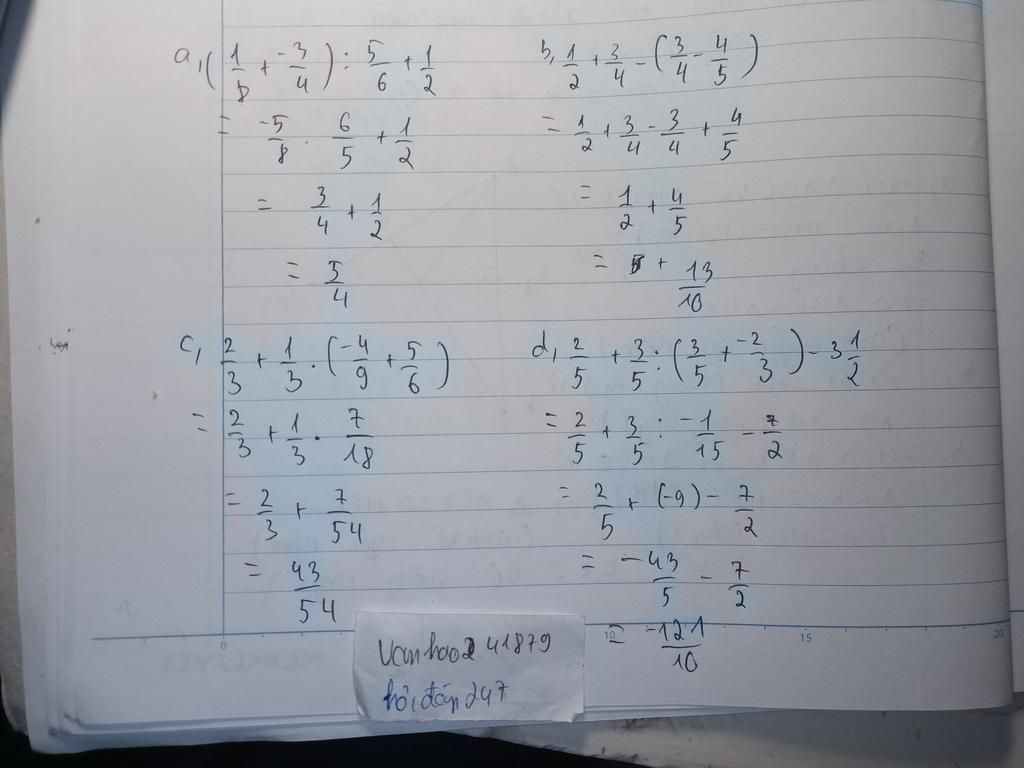 a, (1/8 + -3/4) : 5/6 + 1/2
= -5/8 · 6/5 + 1/2
= 3/4 + 1/2
= 5/4
b, 1/2 + 3/4 - (3/4 - 4/5)
= 1/2 + 3/4 - 3/4 + 4/5
= 1/2 + 4/5
= + 13/10
c, 2/3 + 1/3 · (-4/9 + 5/6)
= 2/3 + 1/3 · 7/18
= 2/3 + 7/54
= 43/54
d, 2/5 + 3/5 : (3/5 + -2/3) - 3 1/2
= 2/5 + 3/5 : -1/15 - 7/2
= 2/5 + (-9) - 7/2
= -43/5 - 7/2
= -121/10
0 10 15 20
Vanhao241879
hỏi đáp 247